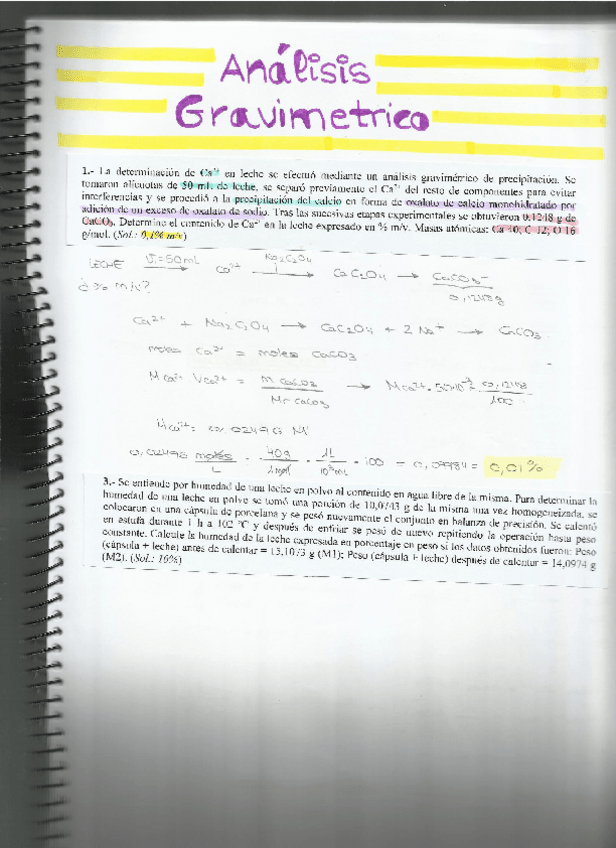 Análisis
Gravimetrico
1.- La determinación de Ca²⁺ en leche se efectuó mediante un análisis gravimétrico de precipitación. Se
tomaron alícuotas de 50 mL de leche, se separó previamente el Ca²⁺ del resto de componentes para evitar
interferencias y se procedió a la precipitación del calcio en forma de oxalato de calcio monohidratado por
adición de un exceso de oxalato de sodio. Tras las sucesivas etapas experimentales se obtuvieron 0.1248 g de
CaCO₃. Determine el contenido de Ca²⁺ en la leche expresado en % m/v. Masas atómicas: Ca 40; C 12; O 16
g/mol. (Sol.: 0,1% m/v)
LECHE V=50mL Ca²⁺ Na₂C₂O₄ CaC₂O₄ → CaCO₃
0,1248g
¿% m/v?
Ca²⁺ + Na₂C₂O₄ → CaC₂O₄ + 2 Na⁺ → CaCO₃
moles Ca²⁺ = moles CaCO₃
M Ca²⁺ V Ca²⁺ = m CaCO₃ / Mr CaCO₃ → M Ca²⁺ · 50·10⁻³ = 0,1248 / 100
M Ca²⁺ = 0,02496 M
moles / L · 40g / 1mol · 1L / 10³mL · 100 = = 0,01%
3.- Se entiende por humedad de una leche en polvo al contenido en agua libre de la misma. Para determinar la
humedad de una leche en polvo se tomó una porción de 10,0743 g de la misma una vez homogeneizada, se
colocaron en una cápsula de porcelana y se pesó nuevamente el conjunto en balanza de precisión. Se calentó
en estufa durante 1 h a 102 ºC y después de enfriar se pesó de nuevo repitiendo la operación hasta peso
constante. Calcule la humedad de la leche expresada en porcentaje en peso si los datos obtenidos fueron: Peso
(cápsula + leche) antes de calentar = 15,1073 g (M1); Peso (cápsula + leche) después de calentar = 14,0974 g
(M2). (Sol.: 10%)